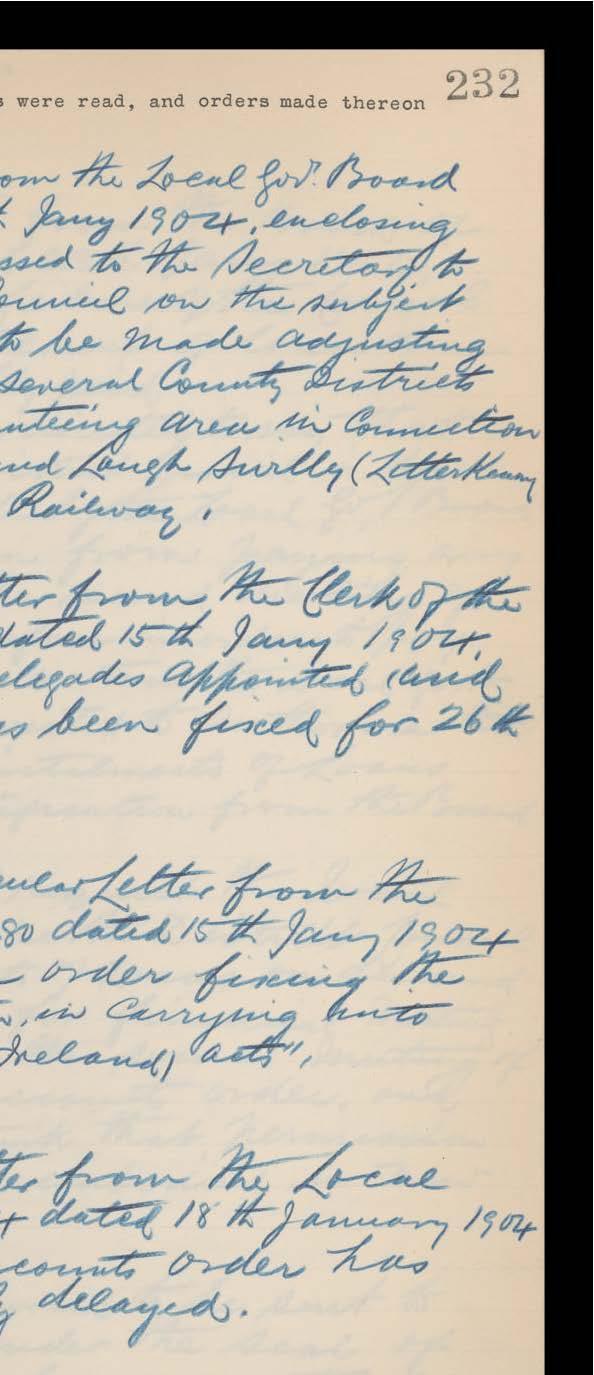 232
s were read, and orders made thereon
om the Local Govt. Board
Jany 1904, enclosing
ssed to the Secretary to
ouncil on the subject
to be made adjusting
several County Districts
nteeing area in Connection
and Lough Swilly (Letterkenny
Railway.
ter from the Clerk of the
dated 15th Jany 1904,
elegades appointed and
s been fixed for 26th
cular Letter from the
80 dated 15th Jany 1904
order fixing the
in Carrying unto
Ireland) acts",
ter from the Local
4 dated 18th January 1904
counts order has
y delayed.